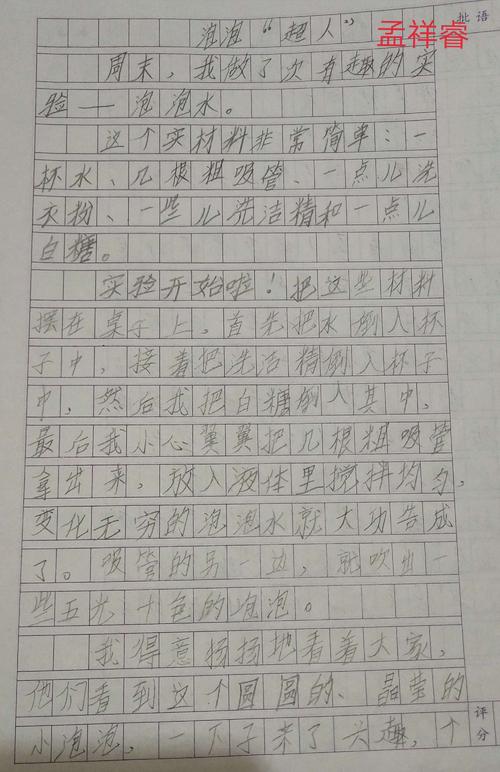 泡泡“超人”
孟祥睿
批语
周末，我做了次有趣的实
验——泡泡水。
这个实材料非常简单：一
杯水、几根粗吸管、一点儿洗
衣粉、一些儿洗洁精和一点儿
白糖。
实验开始啦！把这些材料
摆在桌子上，首先把水倒入杯
子中，接着把洗洁精倒入杯子
中，然后我把白糖倒入其中，
最后我小心翼翼把几根粗吸管
拿出来，放入液体里搅拌均匀，
变化无穷的泡泡水就大功告成
了。吸管的另一边，就吹出一
些五光十色的泡泡。
我得意扬扬地看着大家，
他们看到这个圆圆的、晶莹的
小泡泡，一下子来了兴趣，个
评分